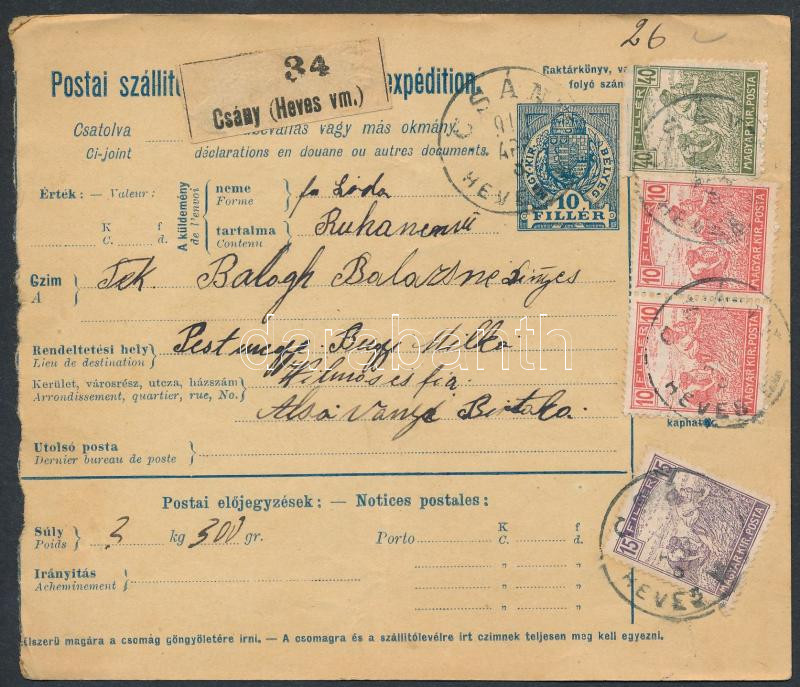 26
Postai szállít expédition.
34
Csány (Heves vm.)
Raktárkönyv, va
folyó szám
Csatolva vallás vagy más okmány
Ci-joint déclarations en douane ou autres documents.
MAGY. KIR. BÉLYEG
10
FILLÉR
CSÁNY
HEVES
40 FILLÉR 40
MAGYAR KIR. POSTA
Érték: — Valeur:
K f
C. d.
A küldemény
de l'envoi
neme
Forme
fa Láda
tartalma
Contenu
Ruhanemü
10 FILLÉR 10
MAGYAR KIR. POSTA
Czim
A
Tek. Balogh Balazsne
darabanth
Rendeltetési hely
Lieu de destination
Pest megye Bugyi
Kerület, városrész, utcza, házszám
Arrondissement, quartier, rue, No.
Vilmos és fia
Alsó Ványi Birtoka
10 FILLÉR 10
MAGYAR KIR. POSTA
HEVES
kaphatók
Utolsó posta
Dernier bureau de poste
Postai előjegyzések: — Notices postales:
Súly
Poids
3 kg 300 gr.
Porto
K f
C. d.
Irányitás
Acheminement
15 FILLÉR 15
MAGYAR KIR. POSTA
HEVES
Kiszerü magára a csomág göngyöletére irni. — A csomagra és a szállitólevélre irt czimnek teljesen meg kell egyezni.